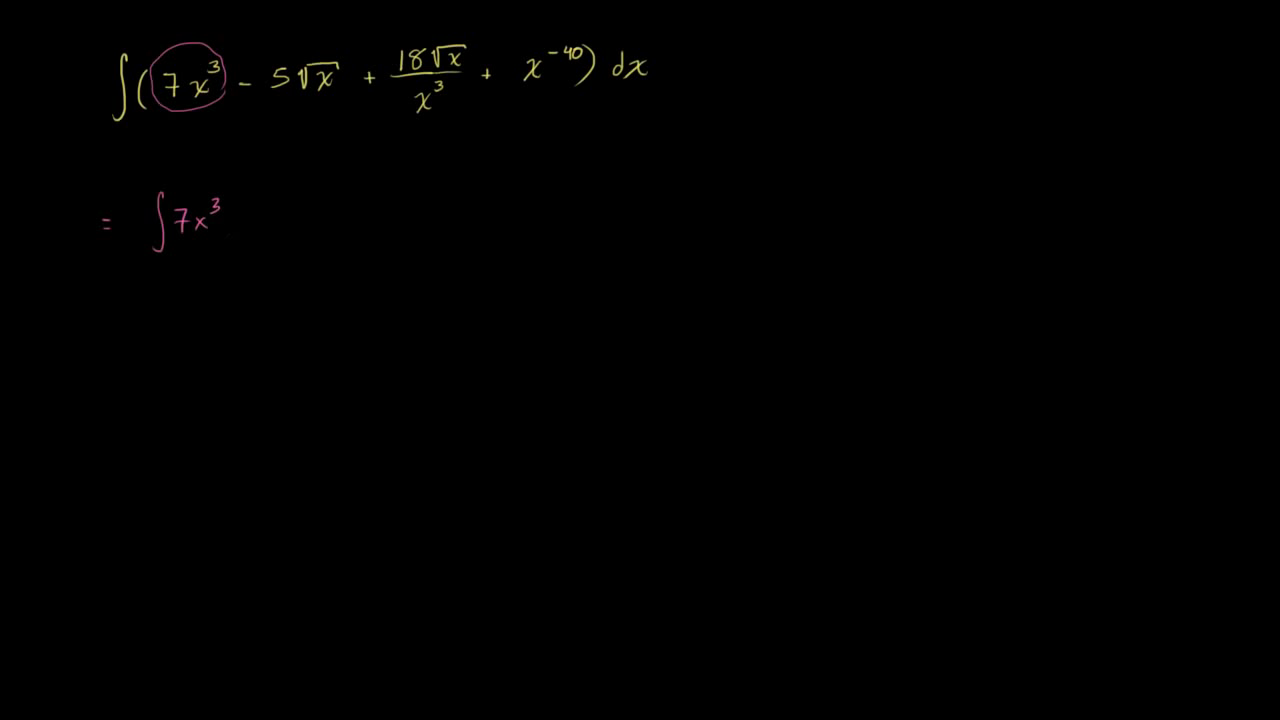 ∫(7x³ - 5√x + 18√x/x³ + x⁻⁴⁰) dx
= ∫7x³